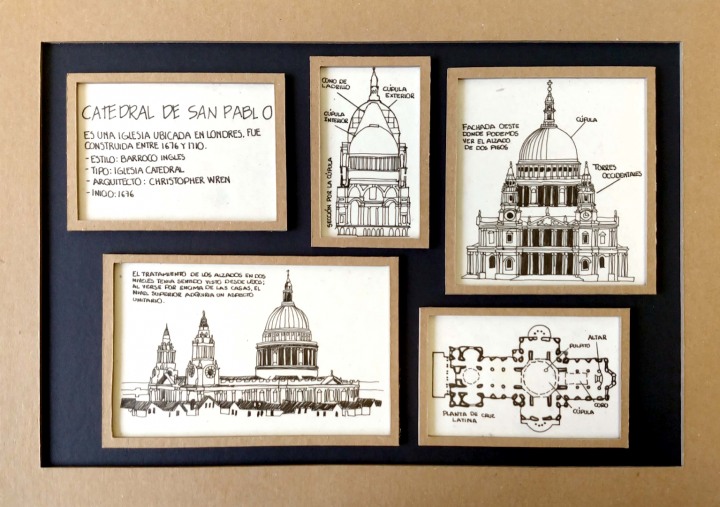 CATEDRAL DE SAN PABLO
ES UNA IGLESIA UBICADA EN LONDRES, FUE
CONSTRUIDA ENTRE 1676 Y 1710.
- ESTILO: BARROCO INGLES
- TIPO: IGLESIA CATEDRAL
- ARQUITECTO: CHRISTOPHER WREN
- INICIO: 1676
CONO DE
LADRILLO
CÚPULA
EXTERIOR
CÚPULA
INTERIOR
SECCIÓN POR LA CÚPULA
FACHADA OESTE
DONDE PODEMOS
VER EL ALZADO
DE DOS PISOS
CÚPULA
TORRES
OCCIDENTALES
EL TRATAMIENTO DE LOS ALZADOS EN DOS
NIVELES TENIA SENTIDO VISTO DESDE LEJOS;
AL VERSE POR ENCIMA DE LAS CASAS, EL
NIVEL SUPERIOR ADQUIRIA UN ASPECTO
UNITARIO.
ALTAR
PULPITO
CORO
CÚPULA
PLANTA DE CRUZ
LATINA